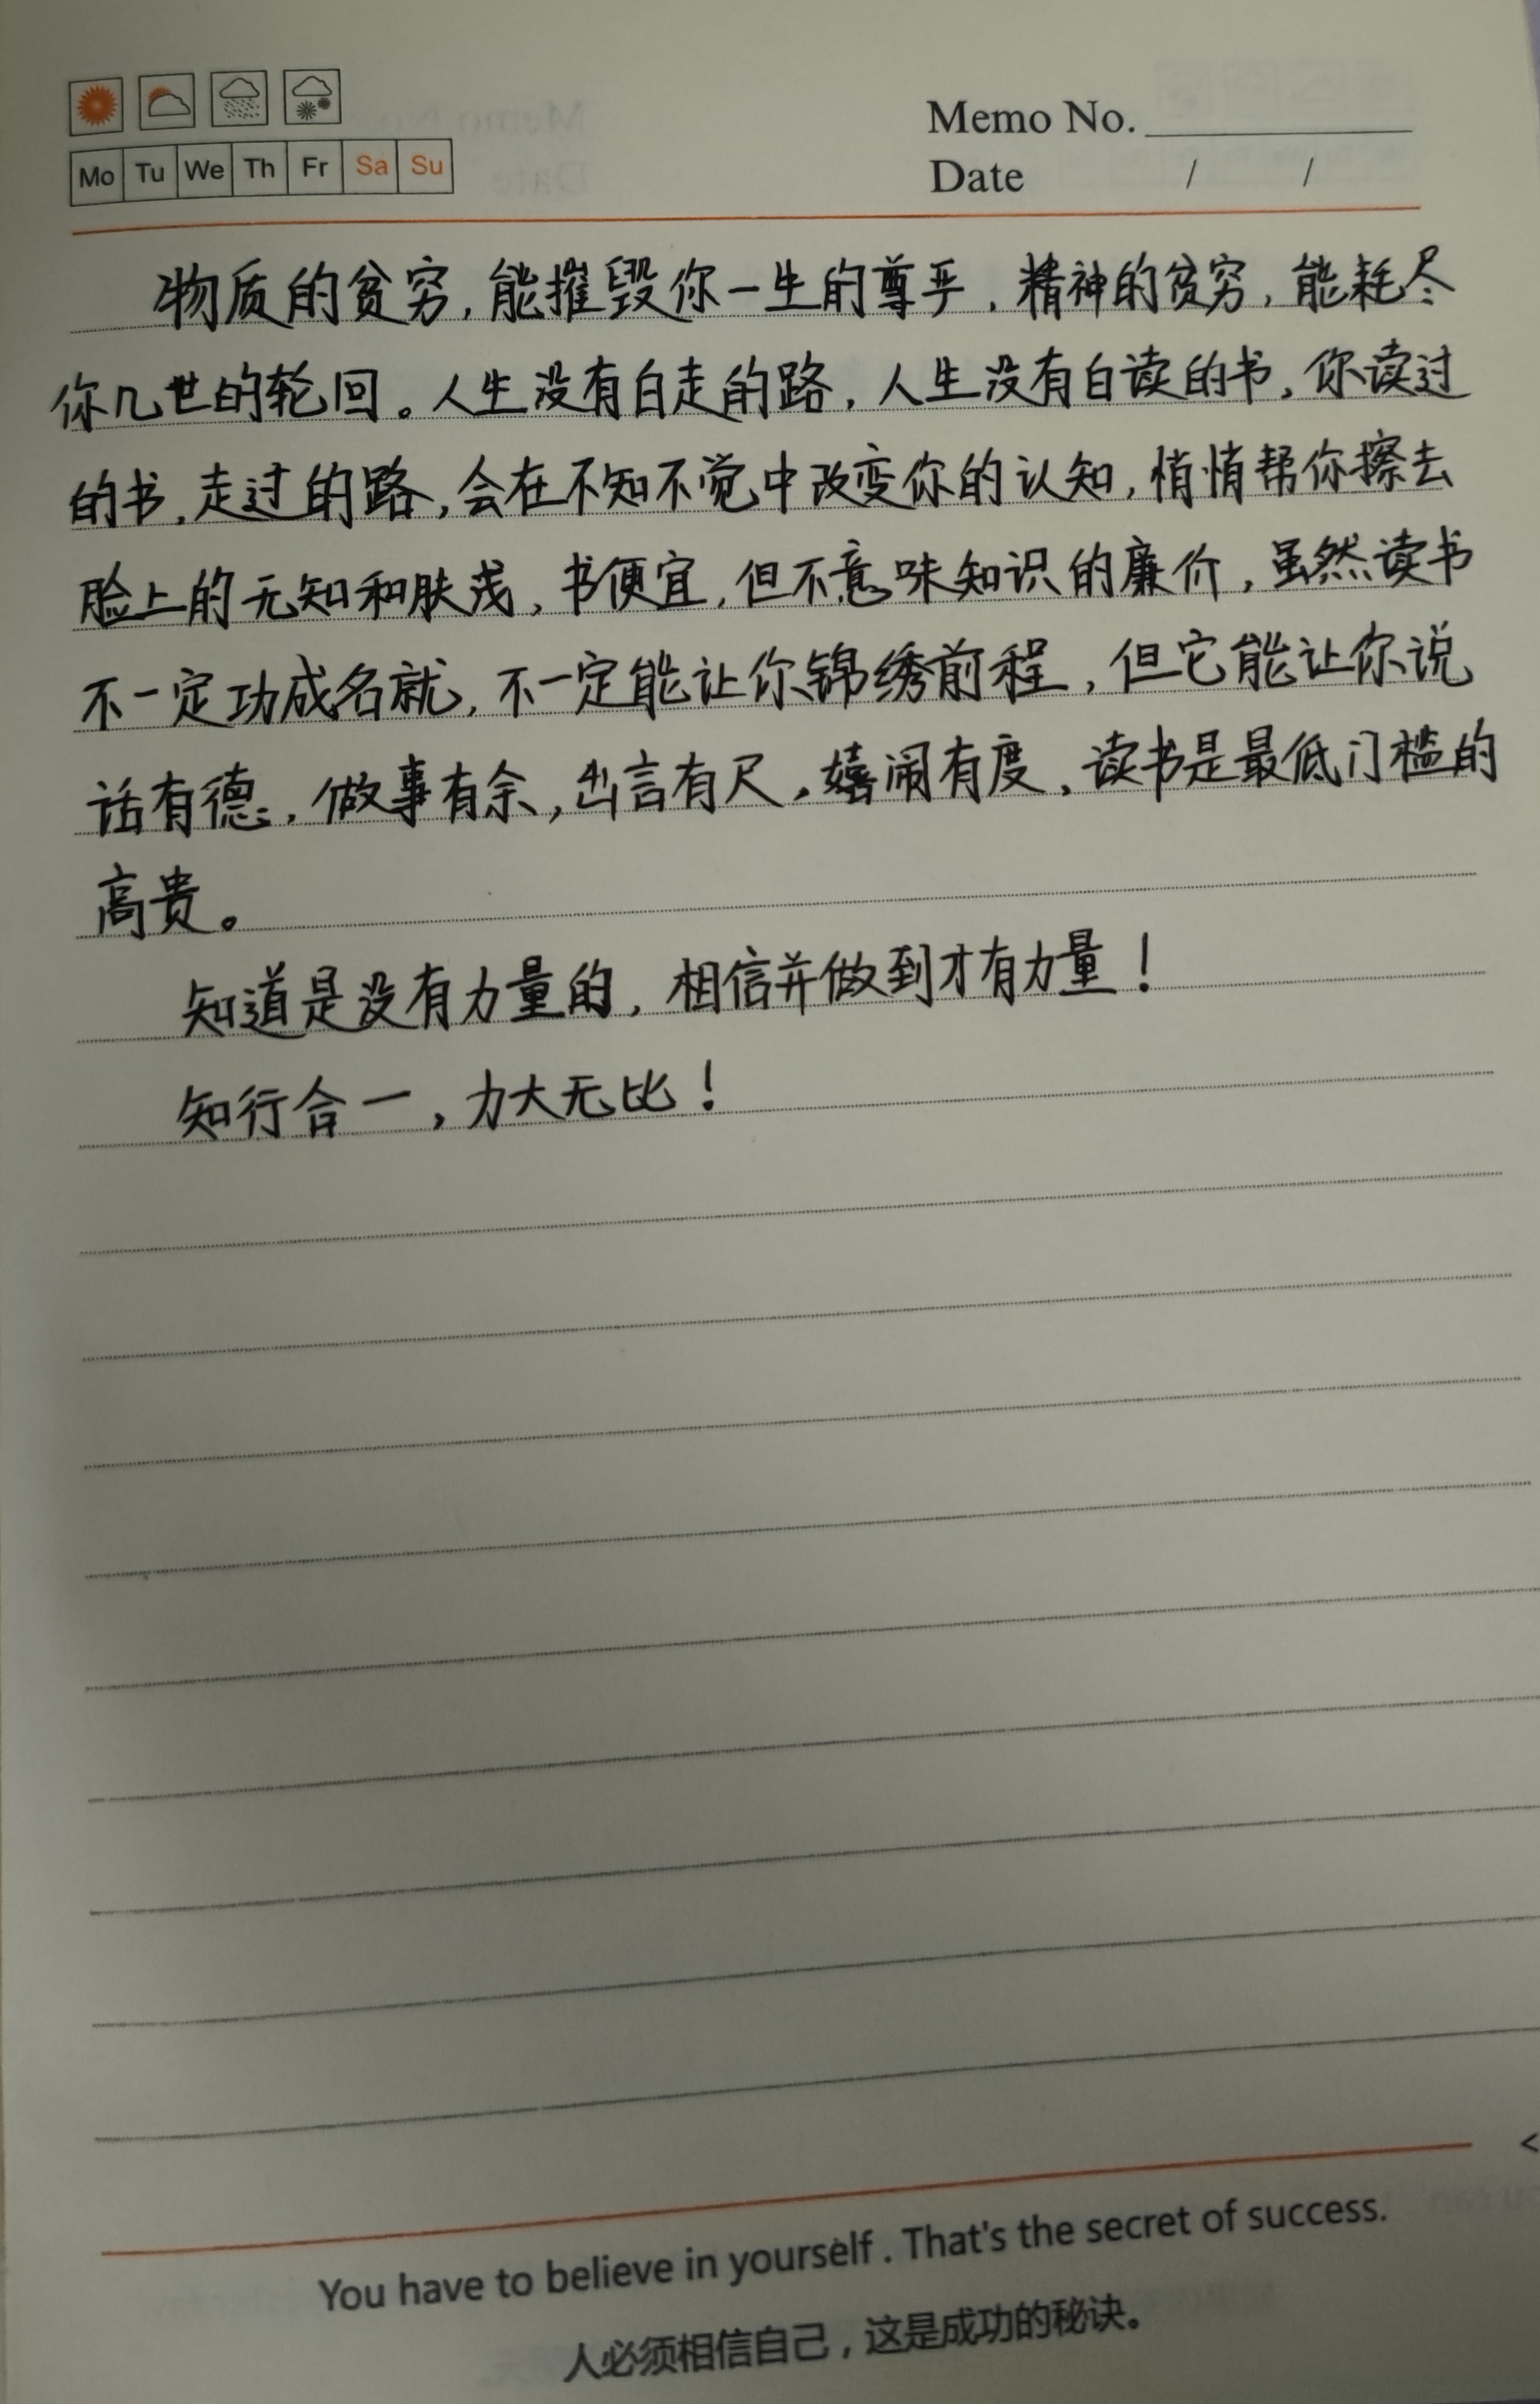 Mo Tu We Th Fr Sa Su
Memo No.
Date / /
物质的贫穷，能摧毁你一生的尊严，精神的贫穷，能耗尽
你几世的轮回。人生没有白走的路，人生没有白读的书，你读过
的书，走过的路，会在不知不觉中改变你的认知，悄悄帮你擦去
脸上的无知和肤浅，书便宜，但不意味知识的廉价，虽然读书
不一定功成名就，不一定能让你锦绣前程，但它能让你说
话有德，做事有余，出言有尺，嬉闹有度，读书是最低门槛的
高贵。
知道是没有力量的，相信并做到才有力量！
知行合一，力大无比！
You have to believe in yourself . That's the secret of success.
人必须相信自己，这是成功的秘诀。